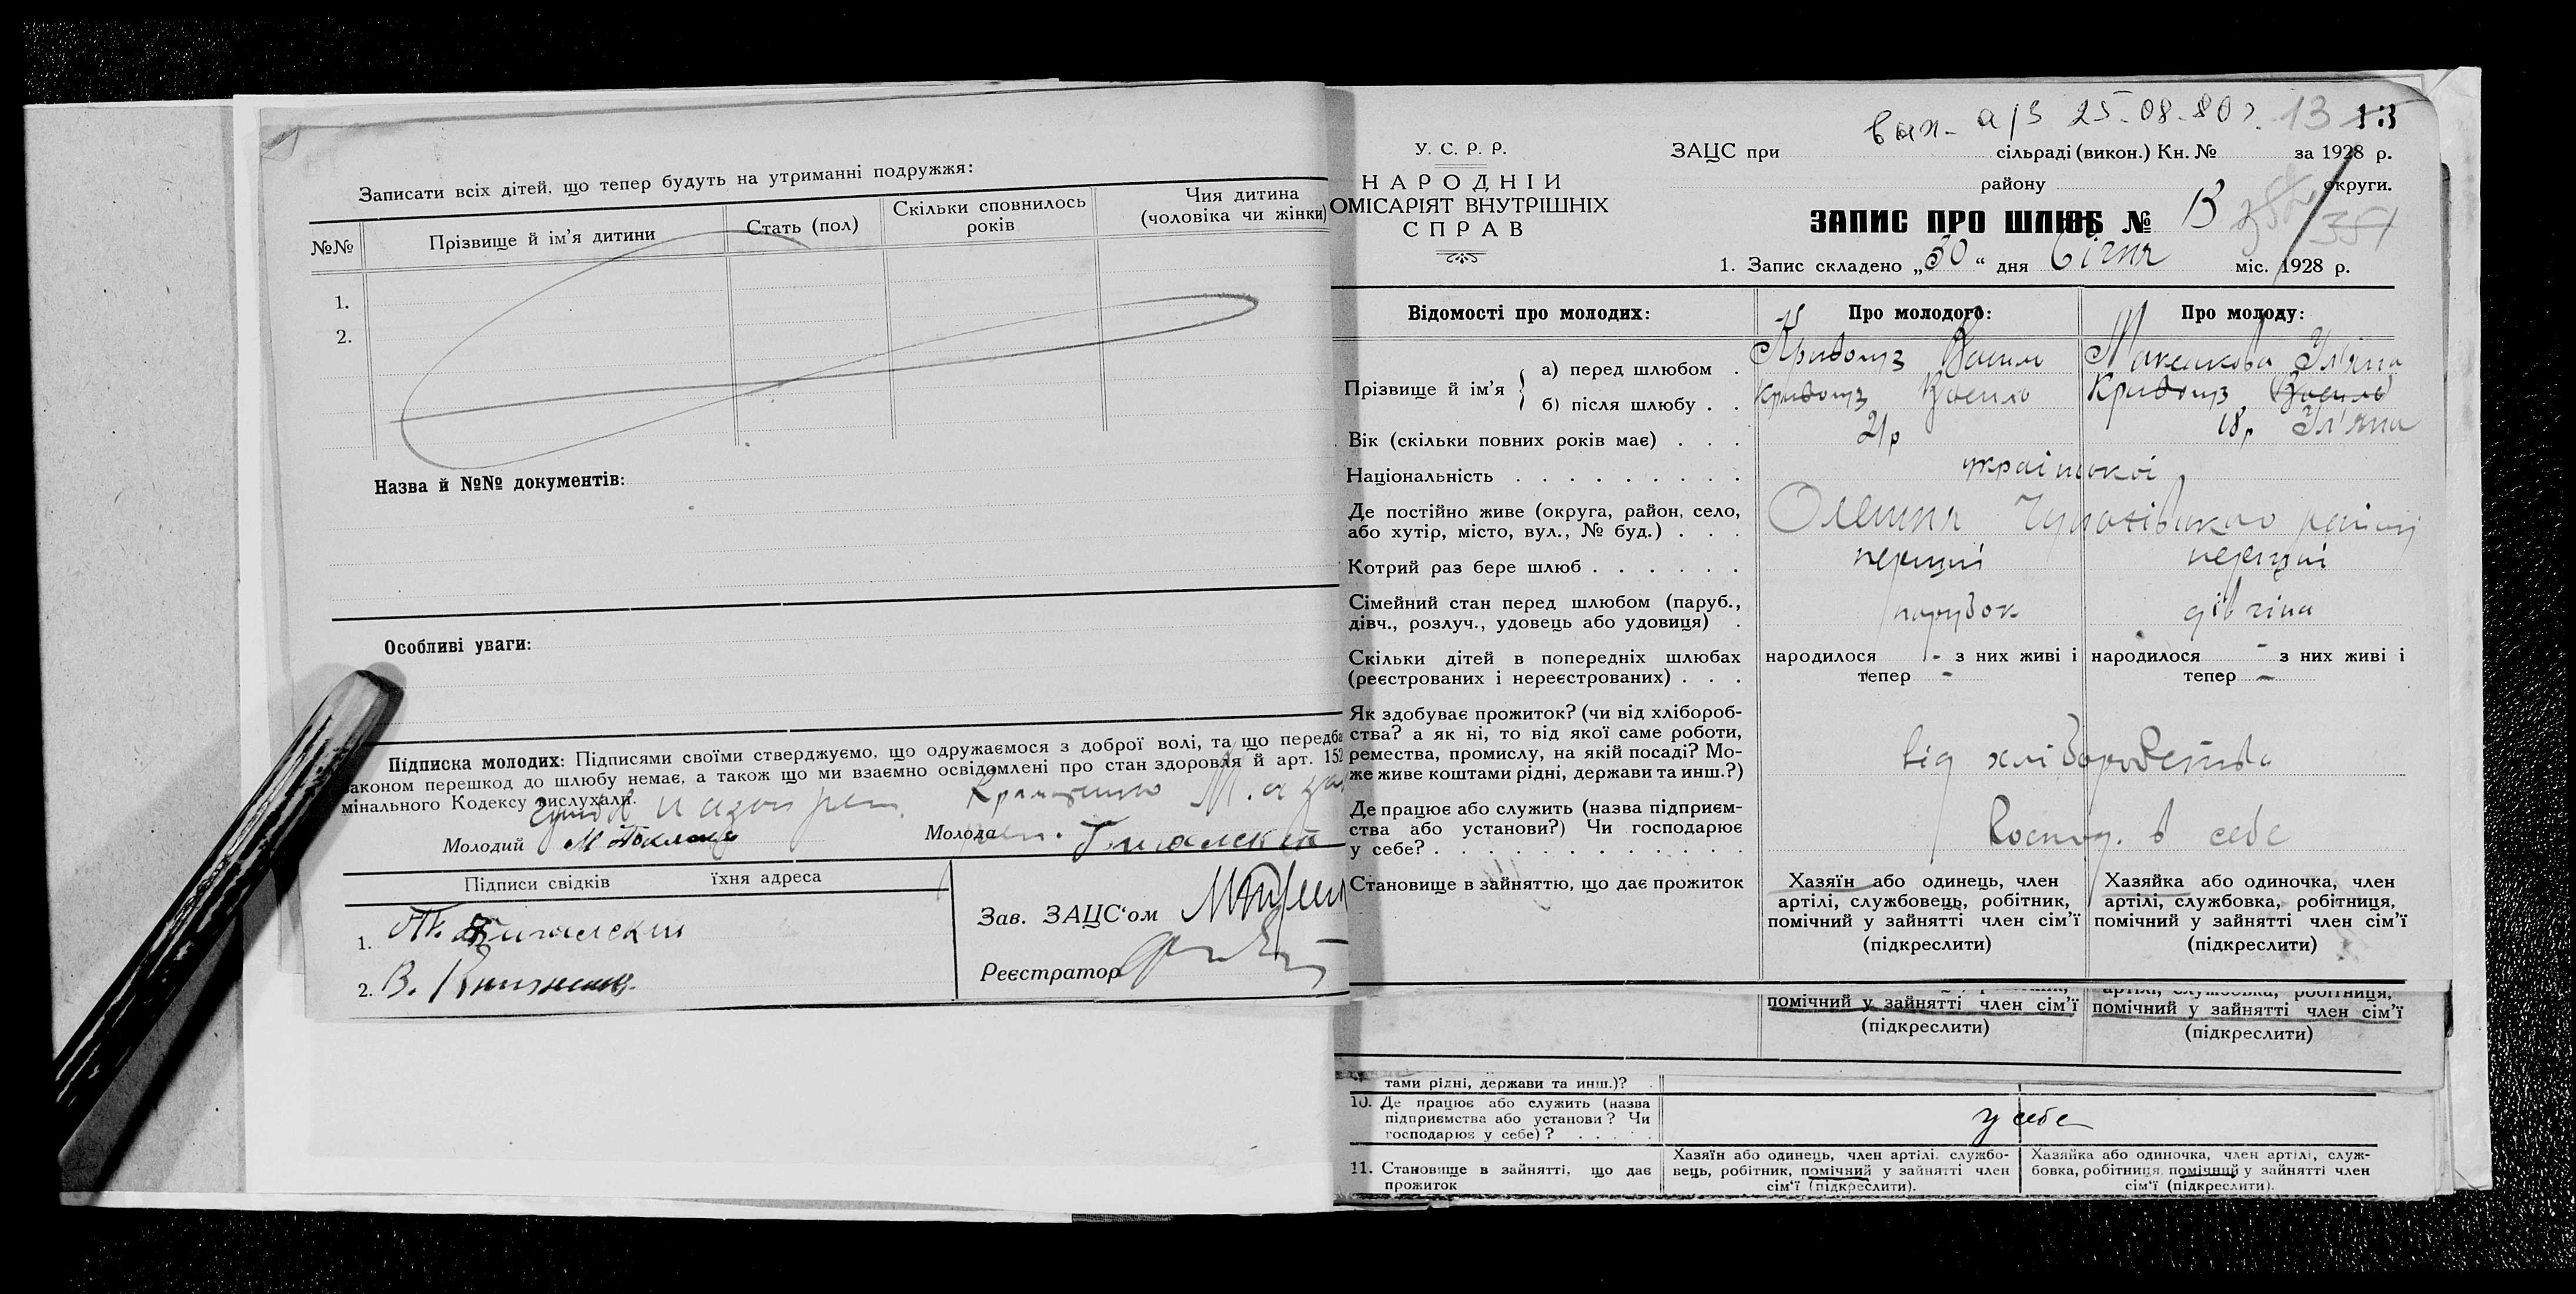 Записати всіх дітей, що тепер будуть на утриманні подружжя:
№№ Прізвище й ім'я дитини Стать (пол) Скільки сповнилось років Чия дитина (чоловіка чи жінки)
1.
2.
Назва й №№ документів:
Особливі уваги:
Підписка молодих: Підписями своїми стверджуємо, що одружаємося з доброї волі, та що передба
аконом перешкод до шлюбу немає, а також що ми взаємно освідомлені про стан здоровля й арт. 152
мінального Кодексу вислухали.
Молодий
Молода
Підписи свідків їхня адреса
1.
2. В.
Зав. ЗАЦС'ом
Реєстратор
25-08-80 13 13
У. С. Р. Р.
НАРОДНІЙ
ОМІСАРІЯТ ВНУТРІШНІХ
СПРАВ
ЗАЦС при сільраді (викон.) Кн. № за 1928 р.
району округи.
ЗАПИС ПРО ШЛЮБ № 13 351
1. Запис складено „30“ дня Січня міс. 1928 р.
Відомості про молодих: Про молодого: Про молоду:
Прізвище й ім'я
а) перед шлюбом . Василь
б) після шлюбу . . Василь Василь
Вік (скільки повних років має) . . . 21р 18р
Національність . . . . . . . . . української
Де постійно живе (округа, район, село,
або хутір, місто, вул., № буд.) . . . Олешня району
Котрий раз бере шлюб . . . . . . перший перший
Сімейний стан перед шлюбом (паруб.,
дівч., розлуч., удовець або удовиця) . парубок дівчина
Скільки дітей в попередніх шлюбах
(реєстрованих і нереєстрованих) . . .
народилося - з них живі і
тепер -
народилося - з них живі і
тепер -
Як здобуває прожиток? (чи від хлібороб-
ства? а як ні, то від якої саме роботи,
ремества, промислу, на якій посаді? Мо-
же живе коштами рідні, держави та инш.?)
від хліборобства
Де працює або служить (назва підприєм-
ства або установи?) Чи господарює
у себе? . . . . . . . . . . . .
Господ. в себе
Становище в зайняттю, що дає прожиток
Хазяїн або одинець, член
артілі, службовець, робітник,
помічний у зайнятті член сім'ї
(підкреслити)
Хазяйка або одиночка, член
артілі, службовка, робітниця,
помічний у зайнятті член сім'ї
(підкреслити)
помічний у зайнятті член сім'ї
(підкреслити)
артілі, службовка, робітниця,
помічний у зайнятті член сім'ї
(підкреслити)
тами рідні, держави та инш.)?
10. Де працює або служить (назва
підприємства або установи? Чи
господарює у себе)? . . . . .
у себе
11. Становище в зайнятті, що дає
прожиток
Хазяїн або одинець, член артілі, службо-
вець, робітник, помічний у зайнятті член
сім'ї (підкреслити).
Хазяйка або одиночка, член артілі, служ-
бовка, робітниця, помічний у зайнятті член
сім'ї (підкреслити).